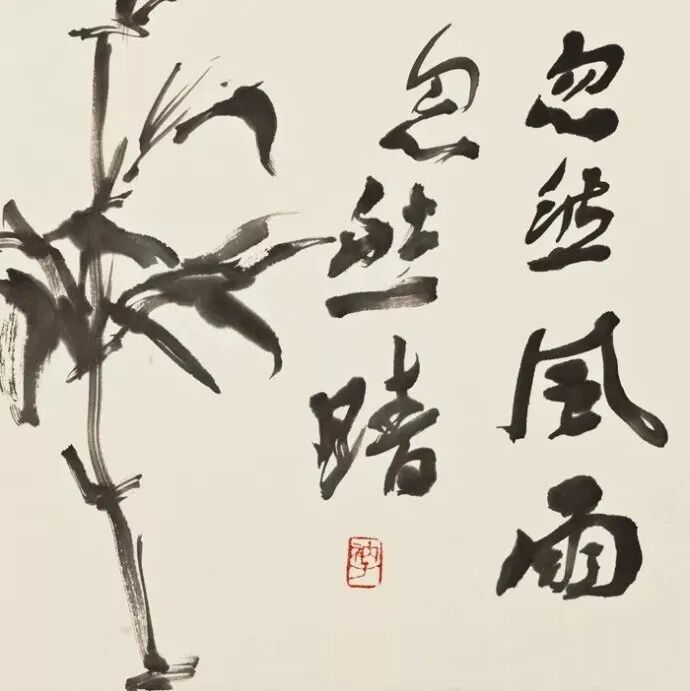 忽然風雨
忽然晴